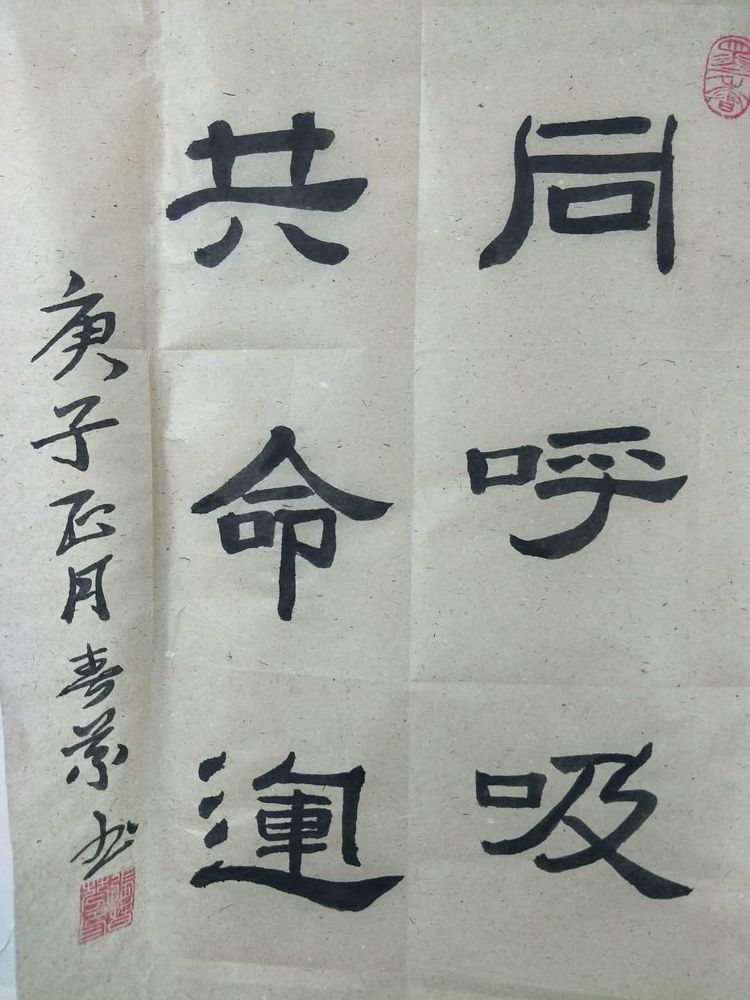 同呼吸
共命運
庚子正月春荣书